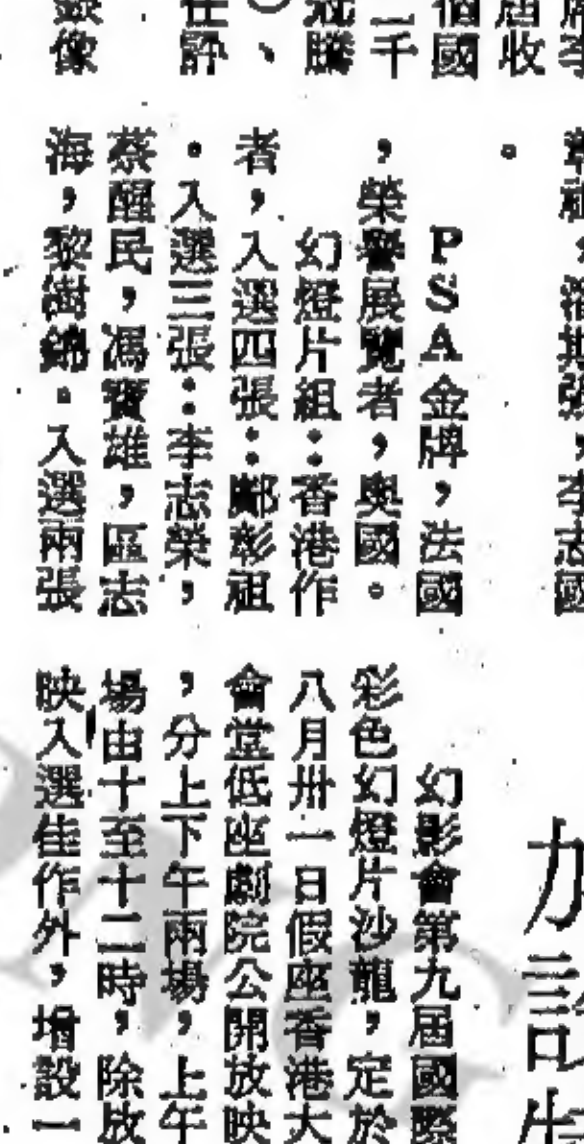 屆收
個國
二千
冠騰
、
任評
錄像
。
PSA金牌，法國
，榮譽展覽者，奧國。
幻燈片組：香港作
者，入選四張：鄺彰祖
。入選三張：李志榮，
蔡醒民，馮寶雄，區志
海，黎樹錦。入選兩張
幻影會第九屆國際
彩色幻燈片沙龍，定於
八月卅一日假座香港大
會堂低座劇院公開放映
，分上下午兩場，上午
場由十至十二時，除放
映入選佳作外，增設一